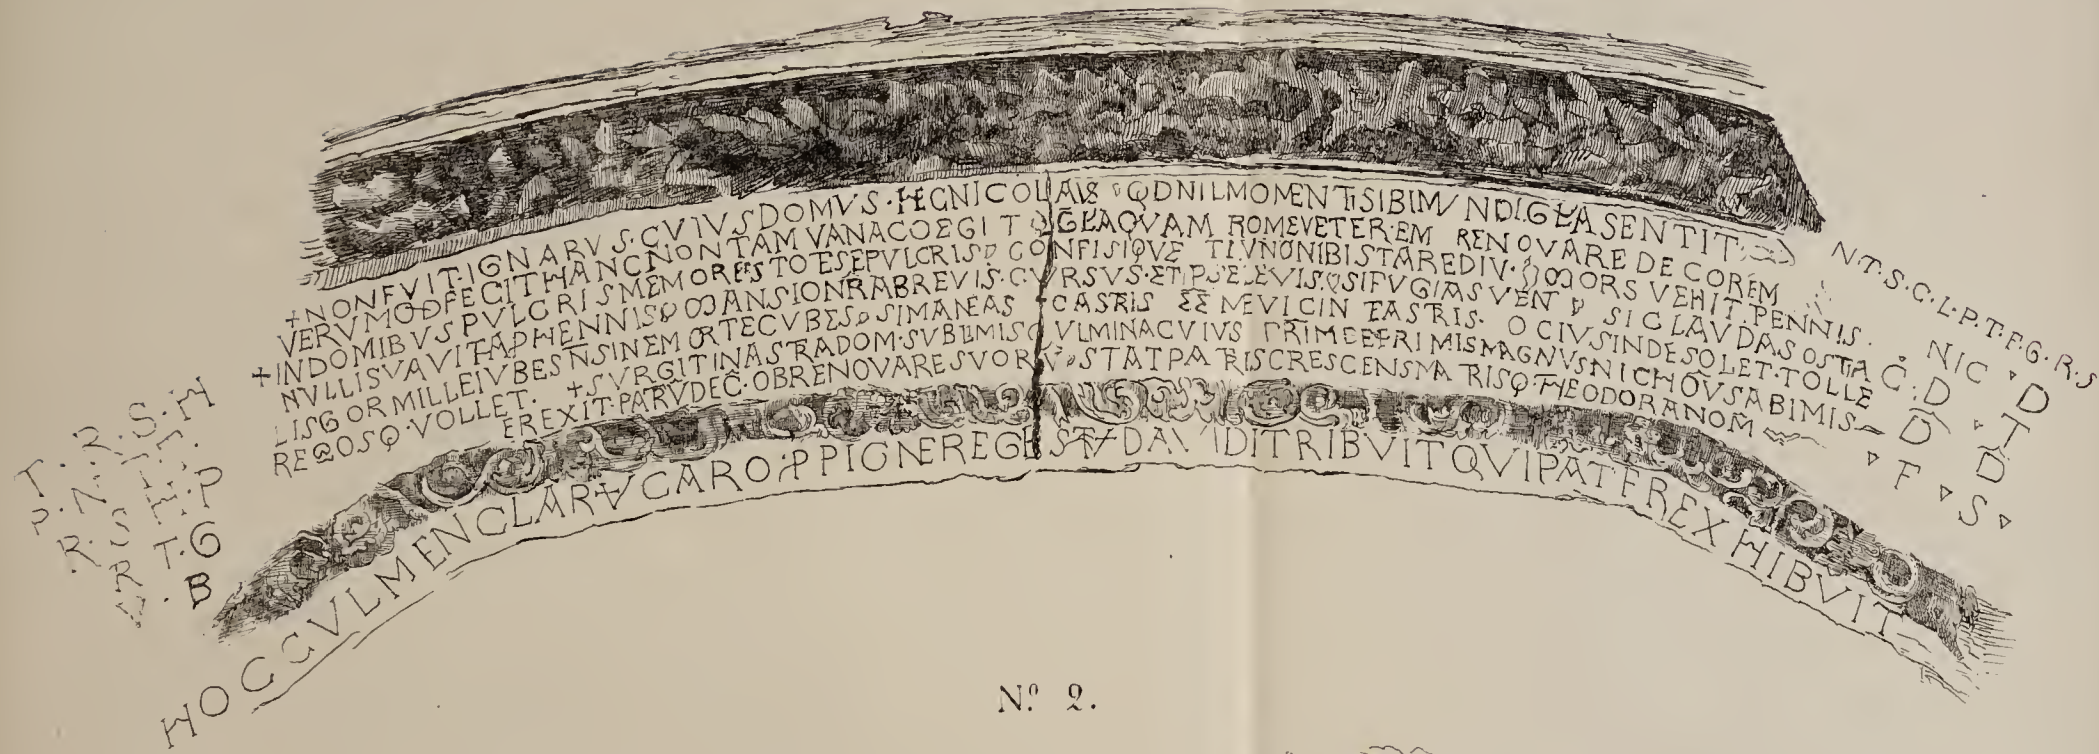 +NONFVIT·IGNARVS·CVIVSDOMVS·HECNICOLAVS QDNILMOMENTISIBIMVNDIGLASENTIT
VERVMQDFECITHANCNONTAMVANACOEGIT GLAQVAM ROMEVETEREM RENOVAREDECOREM
+INDOMIBVSPVLCRISMEMORESTOTESEPVLCRIS CONFISIQVE TIVNONIBISTAREDIV· MORSVEHIT·PENNIS·
NVLLISVAVITAPHENNIS MANSIONRABREVIS·CVRSVS·ETIPSELEVIS·SIFVGIASVENT SICLAVDASOSTIA
LISGORMILLEIVBESNSINEMORTECVBES SIMANEAS CASTRIS MEVICIN EASTRIS· OCIVSINDESOLET·TOLLE
REQOSQ·VOLLET· +SVRGITINASTRADOM·SVBLIMIS CVLMINACVIVS PRIM PRIMISMAGNVSNICHOVSABIMIS
EREXIT·PARVDEC·OBRENOVARESVORV STATPATRISCRESCENSMATRISQ THEODORANOM
HOCCVLMENCLARVCAROPPIGNEREGESTV DAVIDITRIBVITQVIPATEREXHIBVIT
N·T·S·C·L·P·T·F·G·R·S
NIC D
C·D T
D D
F S
S·H
T·R
P·N
P
R·S
T·G
R
B
Nº 2.